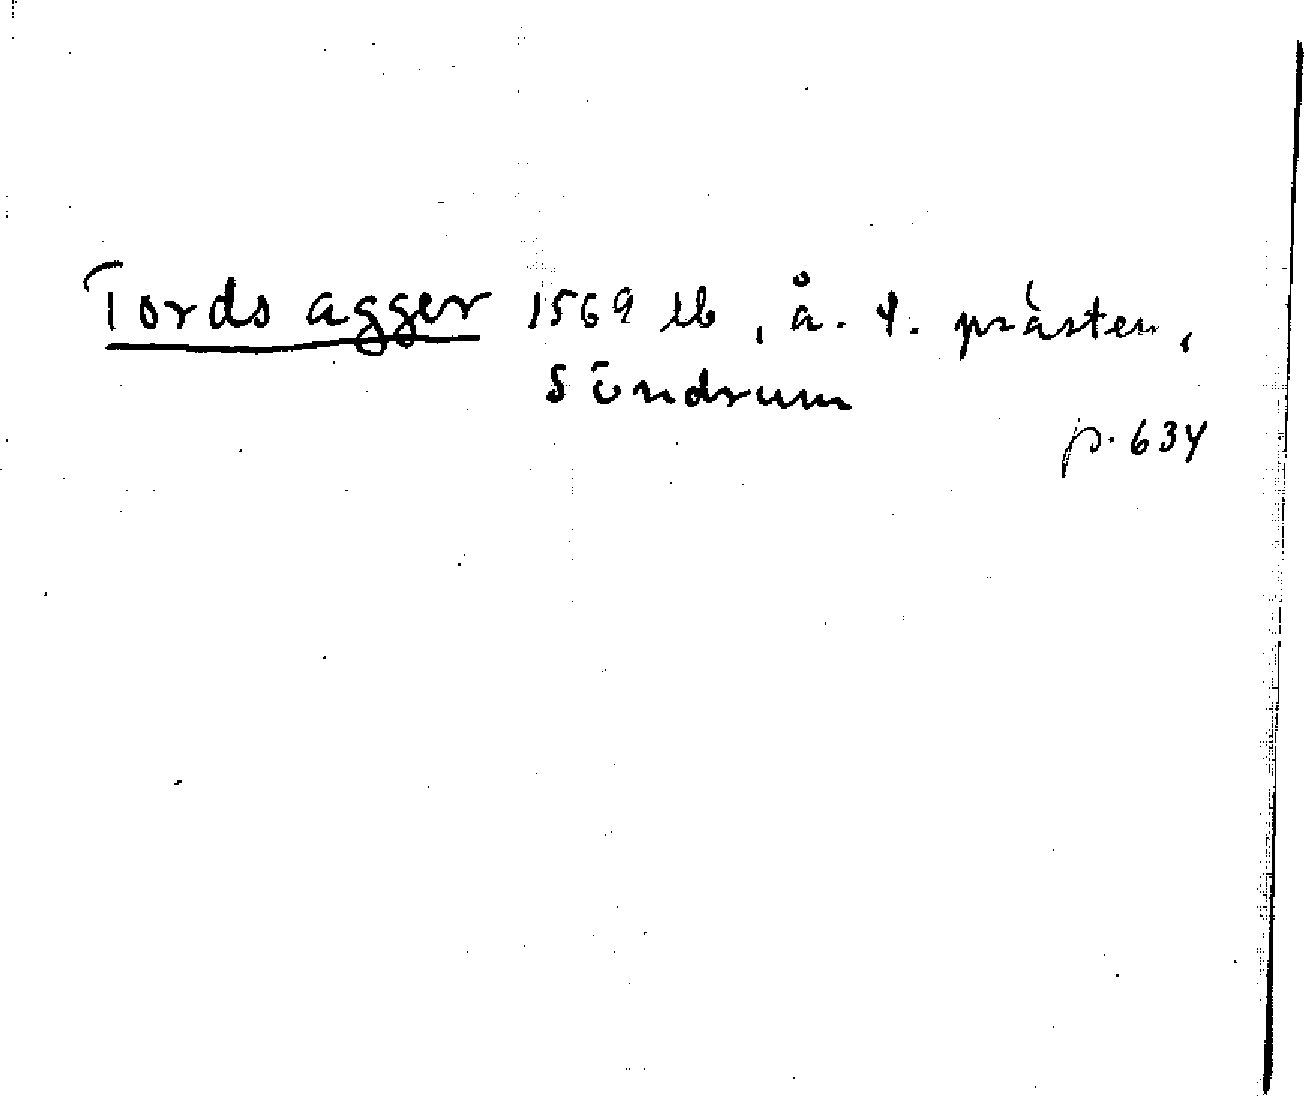 Tords agger 1569 lb, å. t. prästen,
Söndrum
p. 634